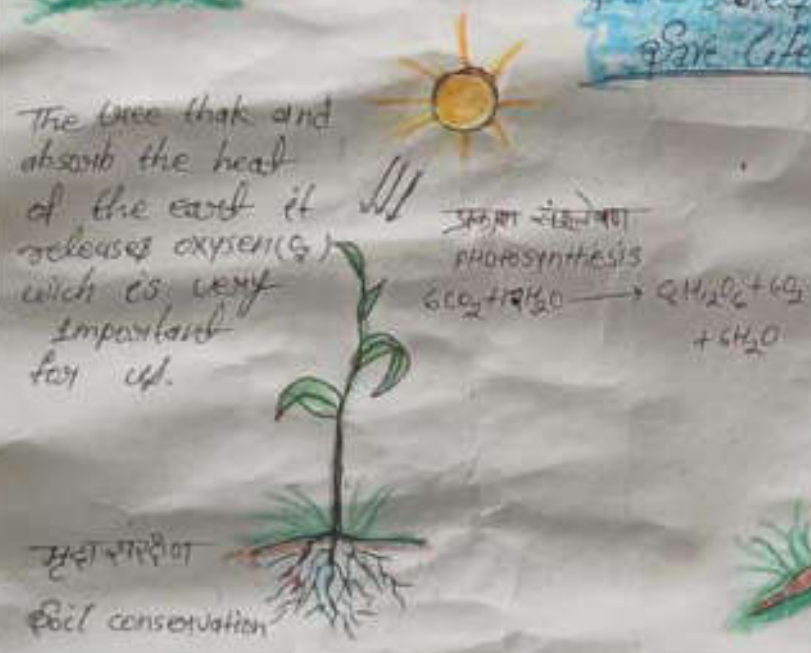 save Life
The tree thak and
absorb the heat
of the eart it
releases oxysen(O2)
wich is very
important
for us.
प्रकाश संश्लेषण
PHotosynthesis
6CO2+12H2O → C6H12O6+6O2
+6H2O
मृदा संरक्षण
Soil conservation